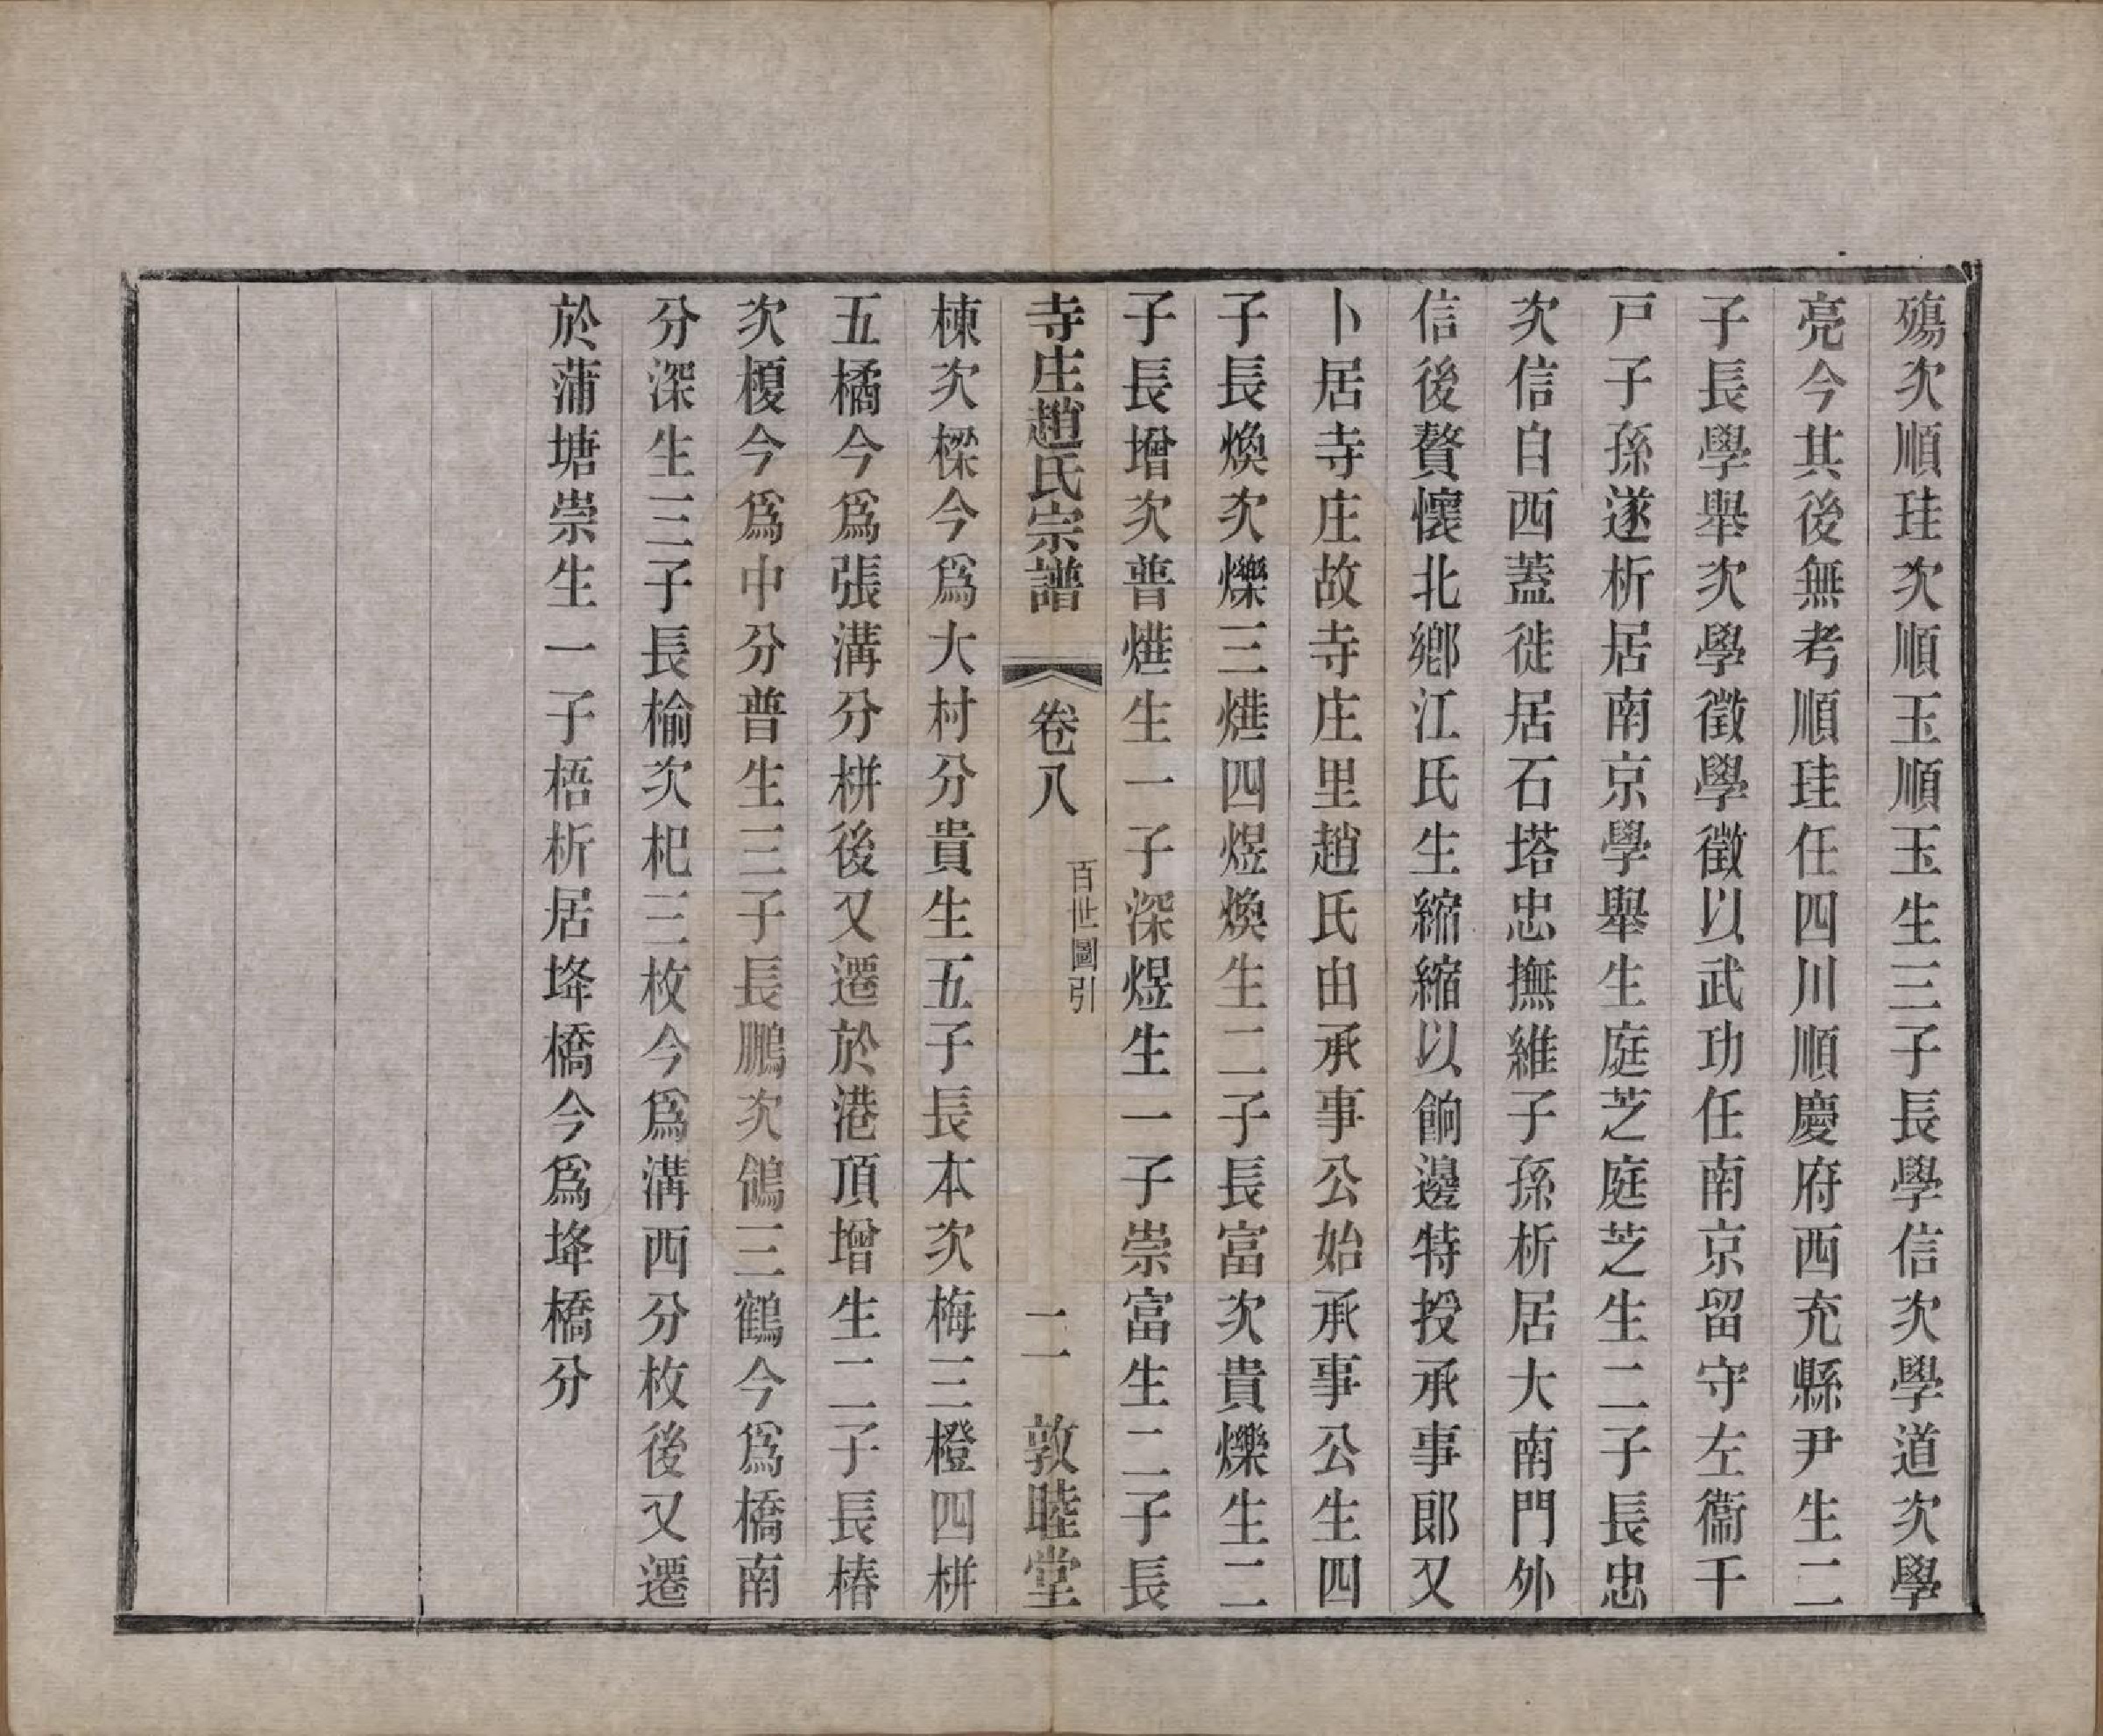 殤次順珪次順玉順玉生三子長學信次學道次學
亮今其後無考順珪任四川順慶府西充縣尹生二
子長學舉次學徵學徵以武功任南京留守左衞千
戸子孫遂析居南京學舉生庭芝庭芝生二子長忠
次信自西蓋徙居石塔忠撫維子孫析居大南門外
信後贅懷北鄉江氏生縮縮以餉邊特授承事郎又
卜居寺庄故寺庄里趙氏由承事公始承事公生四
子長煥次爍三㷸四煜煥生二子長富次貴爍生二
子長增次普㷸生一子深煜生一子崇富生二子長
寺庄趙氏宗譜 卷八 百世圖引 二 敦睦堂
棟次樑今爲大村分貴生五子長本次梅三橙四栟
五橘今爲張溝分栟後又遷於港頂增生二子長椿
次榎今爲中分普生三子長鵬次鴿三鶴今爲橋南
分深生三子長榆次杞三枚今爲溝西分枚後又遷
於蒲塘崇生一子梧析居埄橋今爲埄橋分